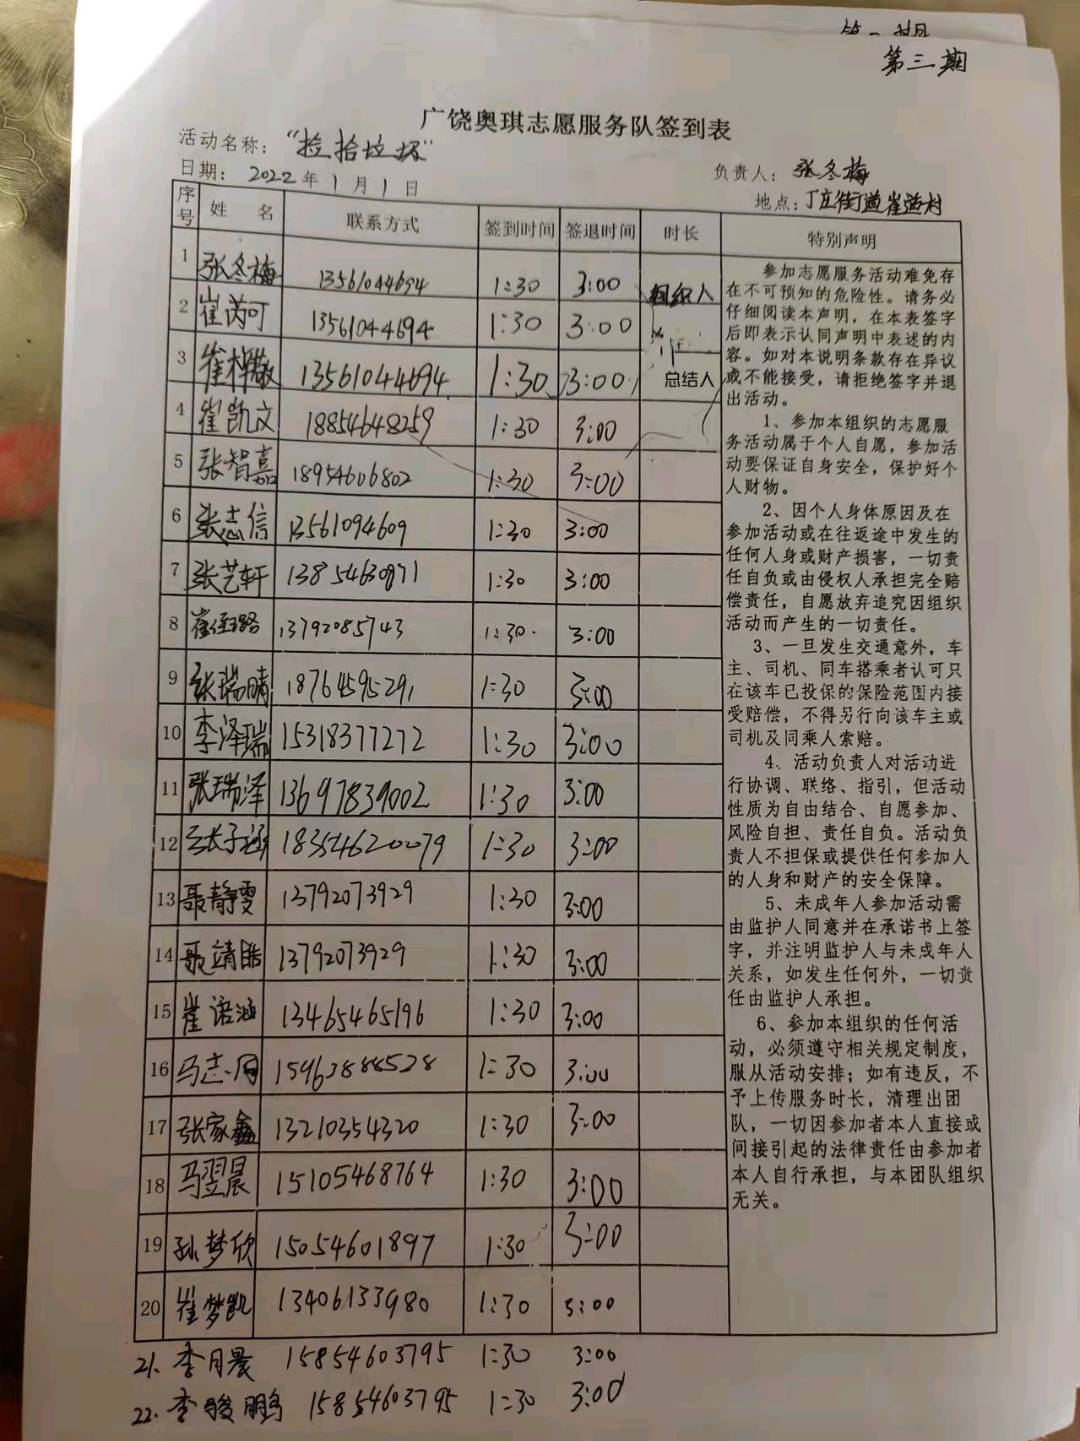 第三期
广饶奥琪志愿服务队签到表
活动名称：“捡拾垃圾”
日期：2022年1月1日
负责人：张冬梅
地点：丁庄街道崔道村
序号 姓名 联系方式 签到时间 签退时间 时长 特别声明
1 张冬梅 13561044694 1:30 3:00 组织人
2 崔芮可 13561044694 1:30 3:00
3 崔梓敬 13561044694 1:30 3:00 总结人
4 崔凯文 18854648259 1:30 3:00
5 张智嘉 18954606802 1:30 3:00
6 张志信 13561094609 1:30 3:00
7 张艺轩 13854630971 1:30 3:00
8 崔 路 13792085743 1:30 3:00
9 张瑞晴 18764595291 1:30 3:00
10 李泽瑞 15318377272 1:30 3:00
11 张瑞泽 13697839002 1:30 3:00
12 张子涵 18354620079 1:30 3:00
13 聂静雯 13792073929 1:30 3:00
14 聂靖皓 13792073929 1:30 3:00
15 崔语涵 13465465196 1:30 3:00
16 马志 15963888528 1:30 3:00
17 张家鑫 13210354320 1:30 3:00
18 马翌晨 15105468764 1:30 3:00
19 孙梦欣 15054601897 1:30 3:00
20 崔梦凯 13406133980 1:30 3:00
21. 李月晨 15854603795 1:30 3:00
22. 李骏鹏 15854603795 1:30 3:00
参加志愿服务活动难免存
在不可预知的危险性。请务必
仔细阅读本声明，在本表签字
后即表示认同声明中表述的内
容。如对本说明条款存在异议
或不能接受，请拒绝签字并退
出活动。
1、参加本组织的志愿服
务活动属于个人自愿，参加活
动要保证自身安全，保护好个
人财物。
2、因个人身体原因及在
参加活动或在往返途中发生的
任何人身或财产损害，一切责
任自负或由侵权人承担完全赔
偿责任，自愿放弃追究因组织
活动而产生的一切责任。
3、一旦发生交通意外，车
主、司机、同车搭乘者认可只
在该车已投保的保险范围内接
受赔偿，不得另行向该车主或
司机及同乘人索赔。
4、活动负责人对活动进
行协调、联络、指引，但活动
性质为自由结合、自愿参加、
风险自担、责任自负。活动负
责人不担保或提供任何参加人
的人身和财产的安全保障。
5、未成年人参加活动需
由监护人同意并在承诺书上签
字，并注明监护人与未成年人
关系，如发生任何外，一切责
任由监护人承担。
6、参加本组织的任何活
动，必须遵守相关规定制度，
服从活动安排；如有违反，不
予上传服务时长，清理出团
队，一切因参加者本人直接或
间接引起的法律责任由参加者
本人自行承担，与本团队组织
无关。